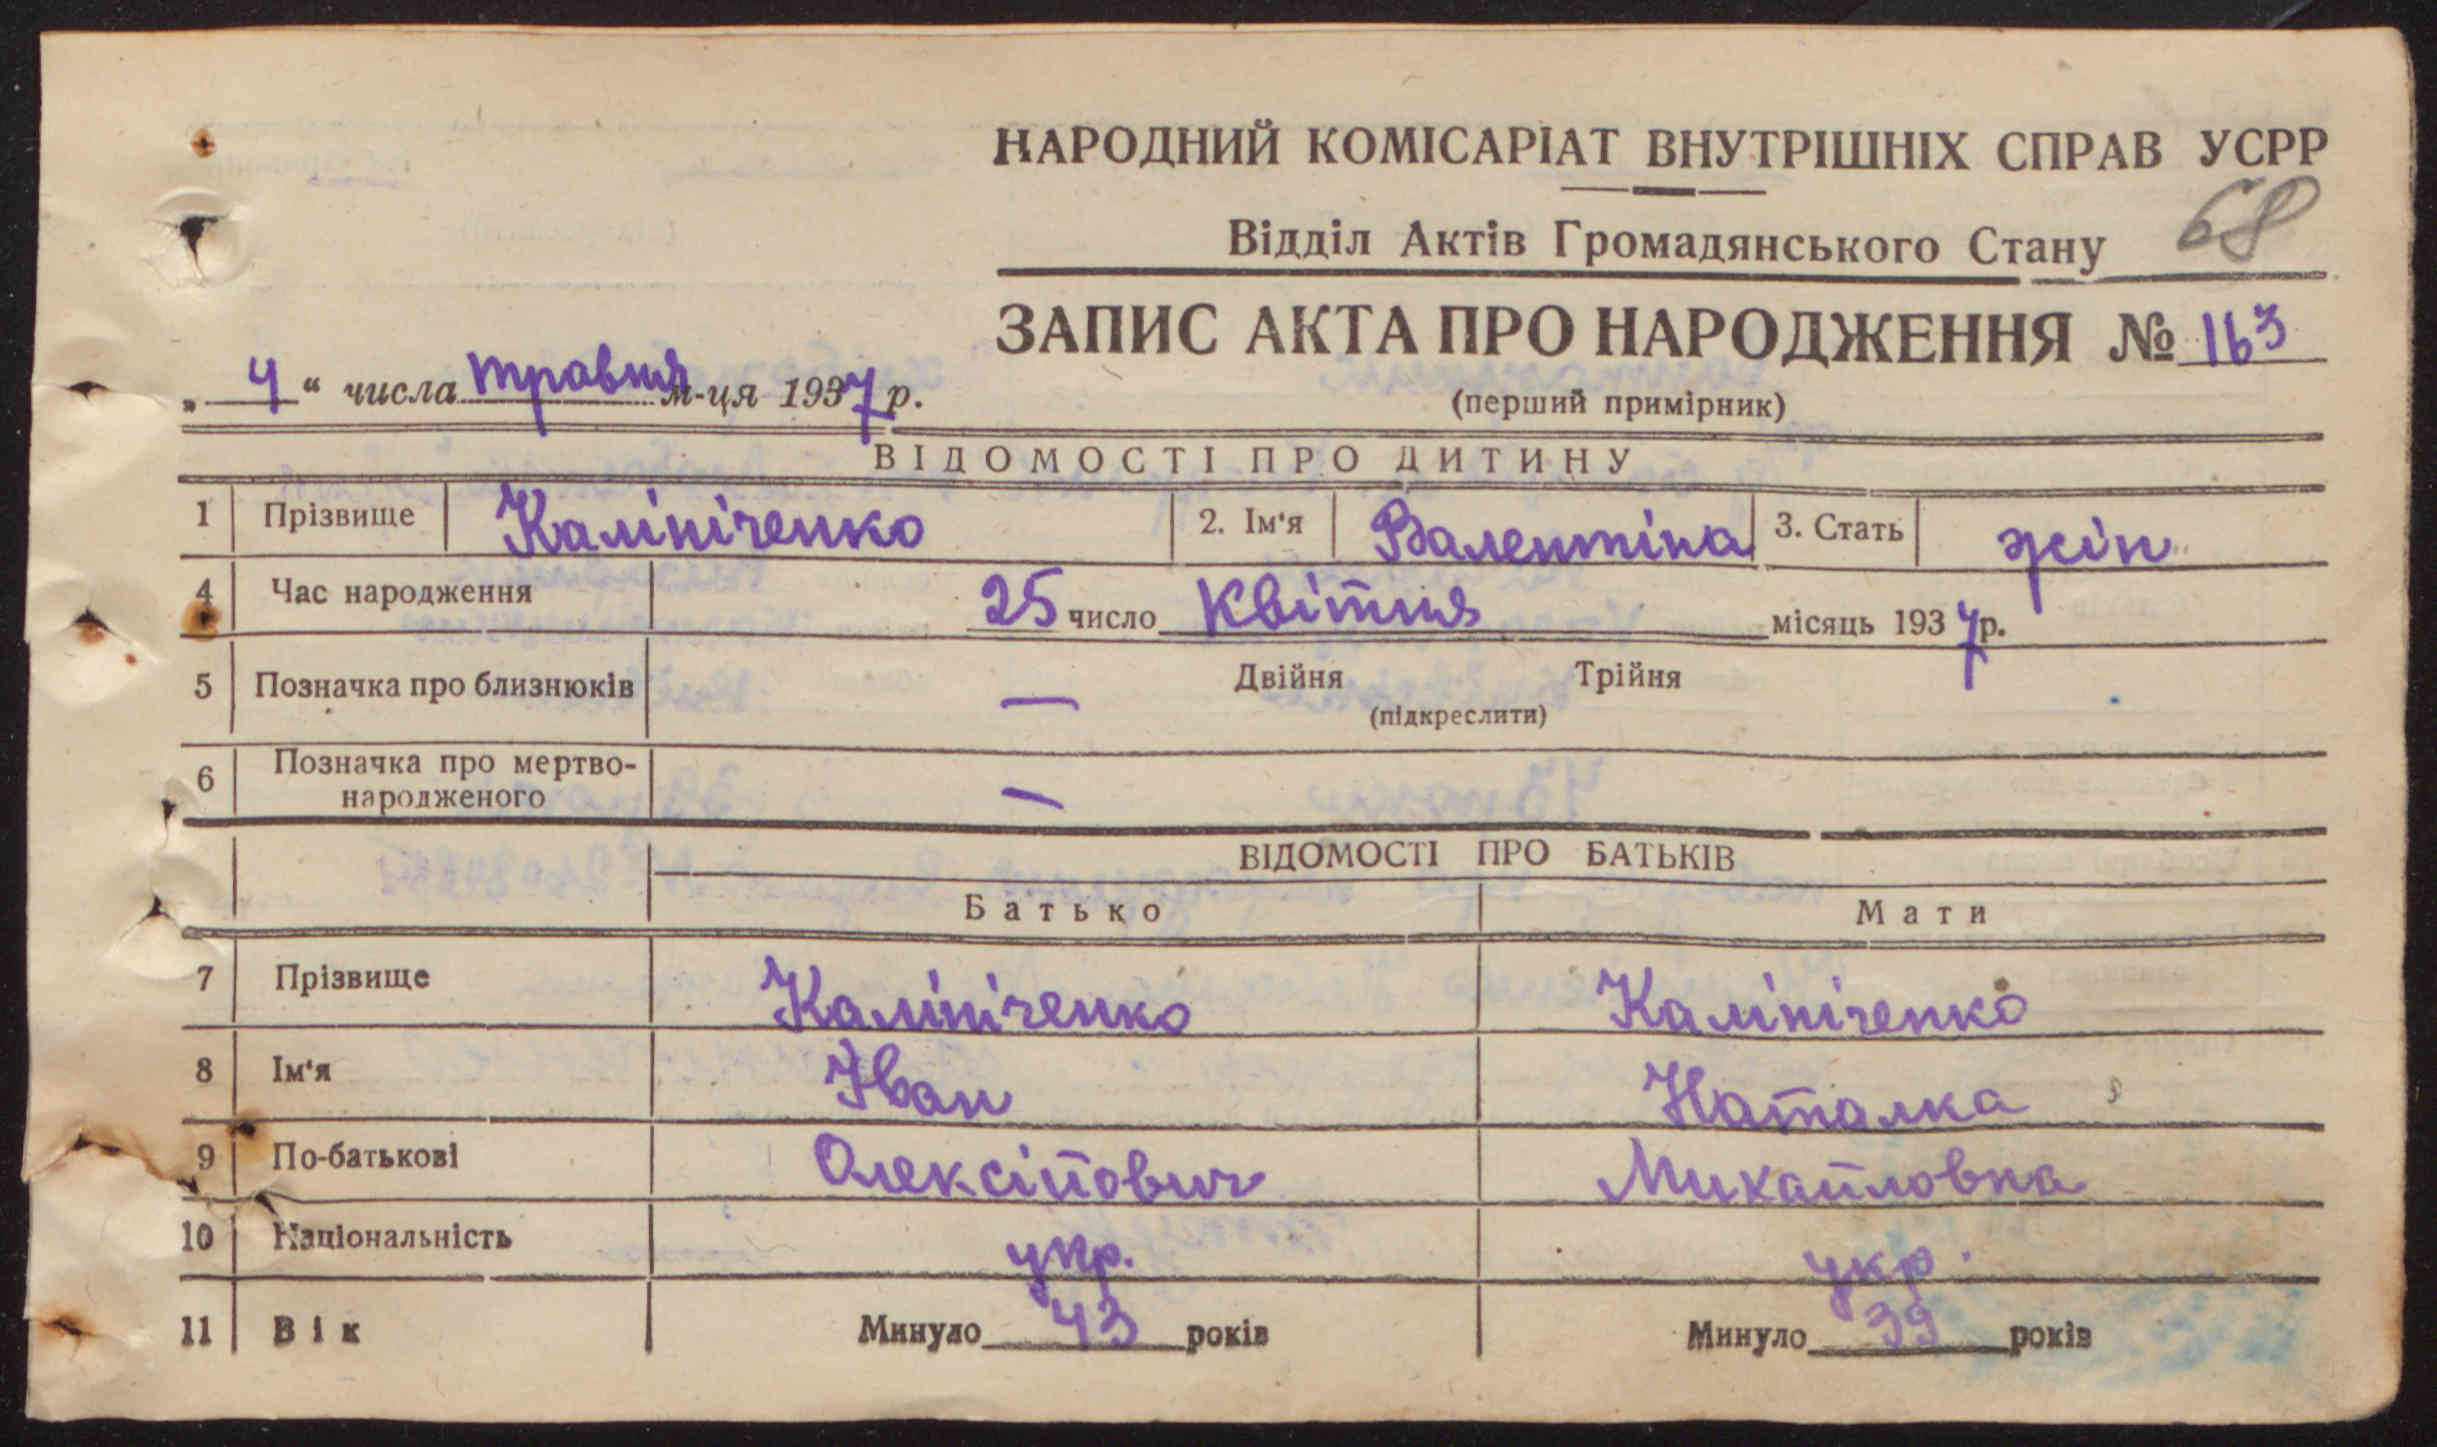 НАРОДНИЙ КОМІСАРІАТ ВНУТРІШНІХ СПРАВ УСРР
68
Відділ Актів Громадянського Стану
ЗАПИС АКТА ПРО НАРОДЖЕННЯ № 163
„ 4 “ числа травня м-ця 1937 р.
(перший примірник)
ВІДОМОСТІ ПРО ДИТИНУ
1 Прізвище Калініченко 2. Ім‘я Валентіна 3. Стать жін
4 Час народження 25 число Квітня місяць 1937 р.
5 Позначка про близнюків — Двійня Трійня
(підкреслити)
6 Позначка про мертво-
народженого —
ВІДОМОСТІ ПРО БАТЬКІВ
Батько Мати
7 Прізвище Калініченко Калініченко
8 Ім‘я Іван Наталка
9 По-батькові Олексійович Михайловна
10 Національність укр. укр.
11 Вік Минуло 43 років Минуло 39 років